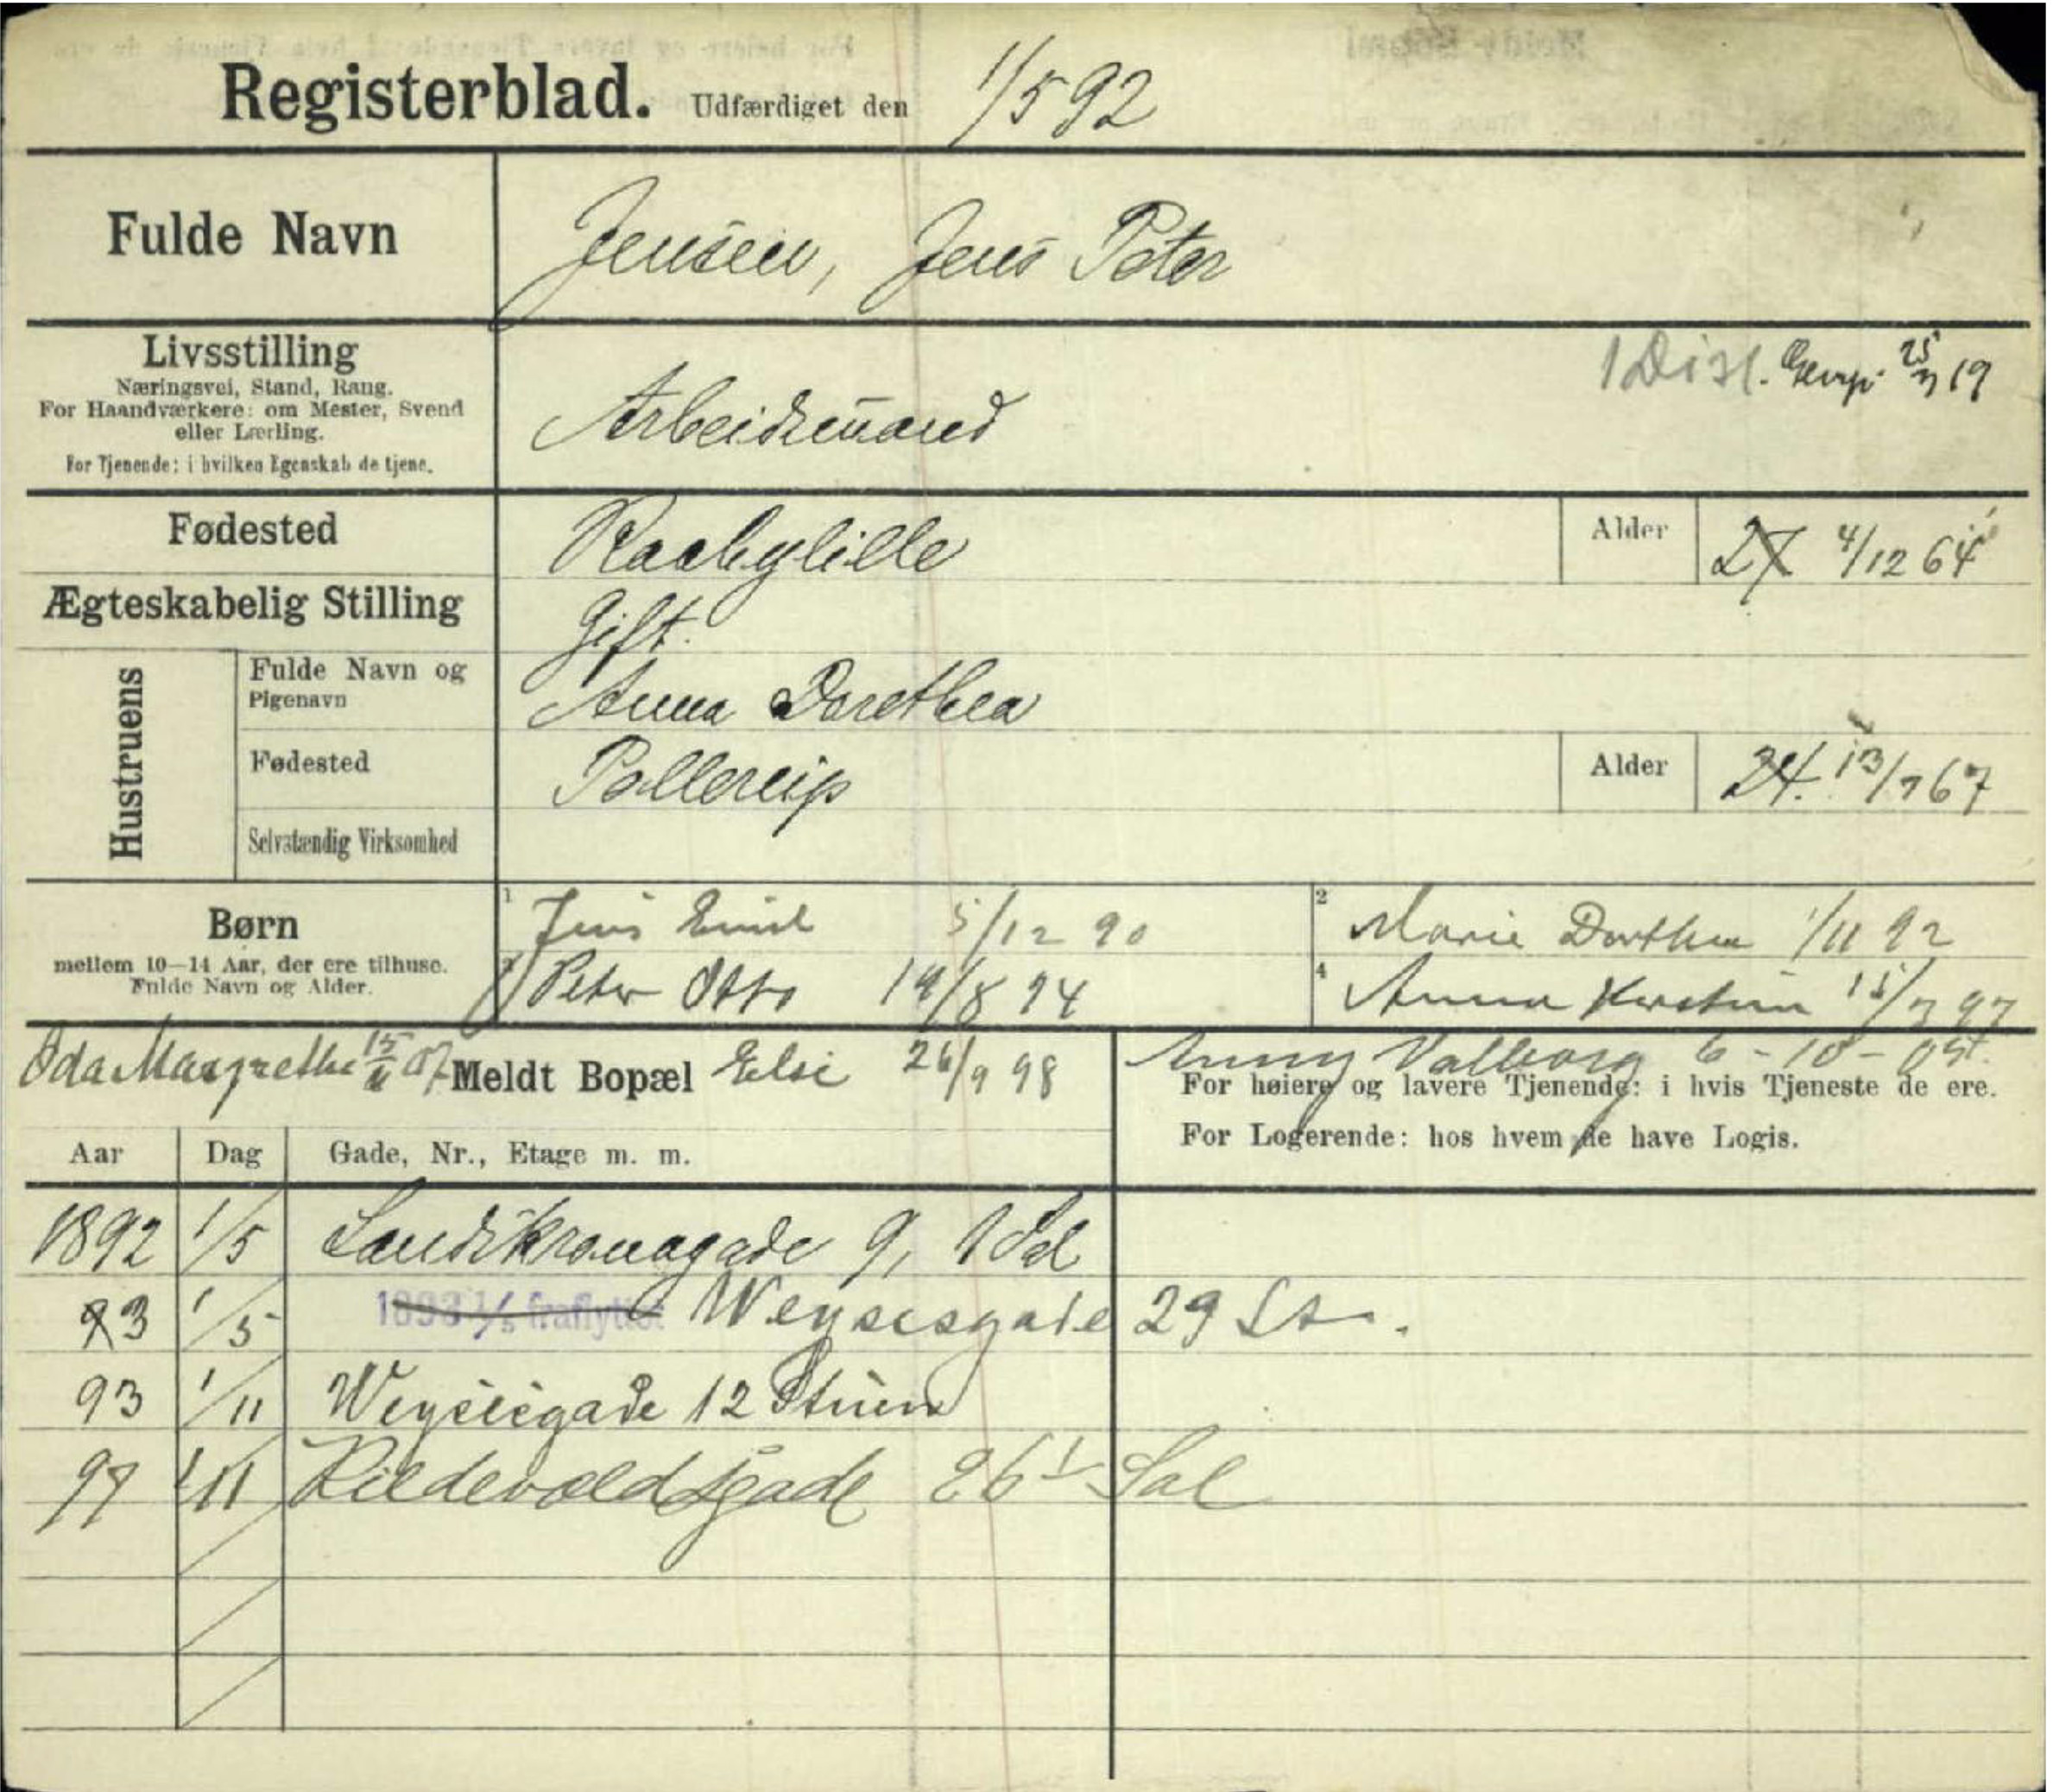 Registerblad. Udfærdiget den 1/5 92
Fulde Navn
Jensen, Jens Peter
Livsstilling
Næringsvei, Stand, Rang.
For Haandværkere: om Mester, Svend
eller Lærling.
For Tjenende: i hvilken Egenskab de tjene.
Arbeidsmand
1 Dist. 19
Fødested
Raabylille
Alder
27 4/12 64
Ægteskabelig Stilling
Gift.
Hustruens
Fulde Navn og
Pigenavn
Anna Dorethea
Fødested
Pollereip
Alder
24. 13/7 67
Selvstændig Virksomhed
Børn
mellem 10—14 Aar, der ere tilhuse.
Fulde Navn og Alder.
1 Jens Emil 5/12 90
2 Marie Dorthea 1/11 92
3 Peter Otto 19/8 94
4 Anna Kirstine 15/3 97
Oda Margrethe 15/11 07
Meldt Bopæl
Else 26/9 98
Anny Valborg 6-10-05
For høiere og lavere Tjenende: i hvis Tjeneste de ere.
For Logerende: hos hvem de have Logis.
Aar Dag Gade, Nr., Etage m. m.
1892 1/5 Landskronagade 9, 1 Sal
93 1/5 1893 1/5 fraflyttet Weysesgade 29 St.
93 1/11 Weysesgade 12 Stuen
97 1/11 Kildevældsgade 26 1 Sal